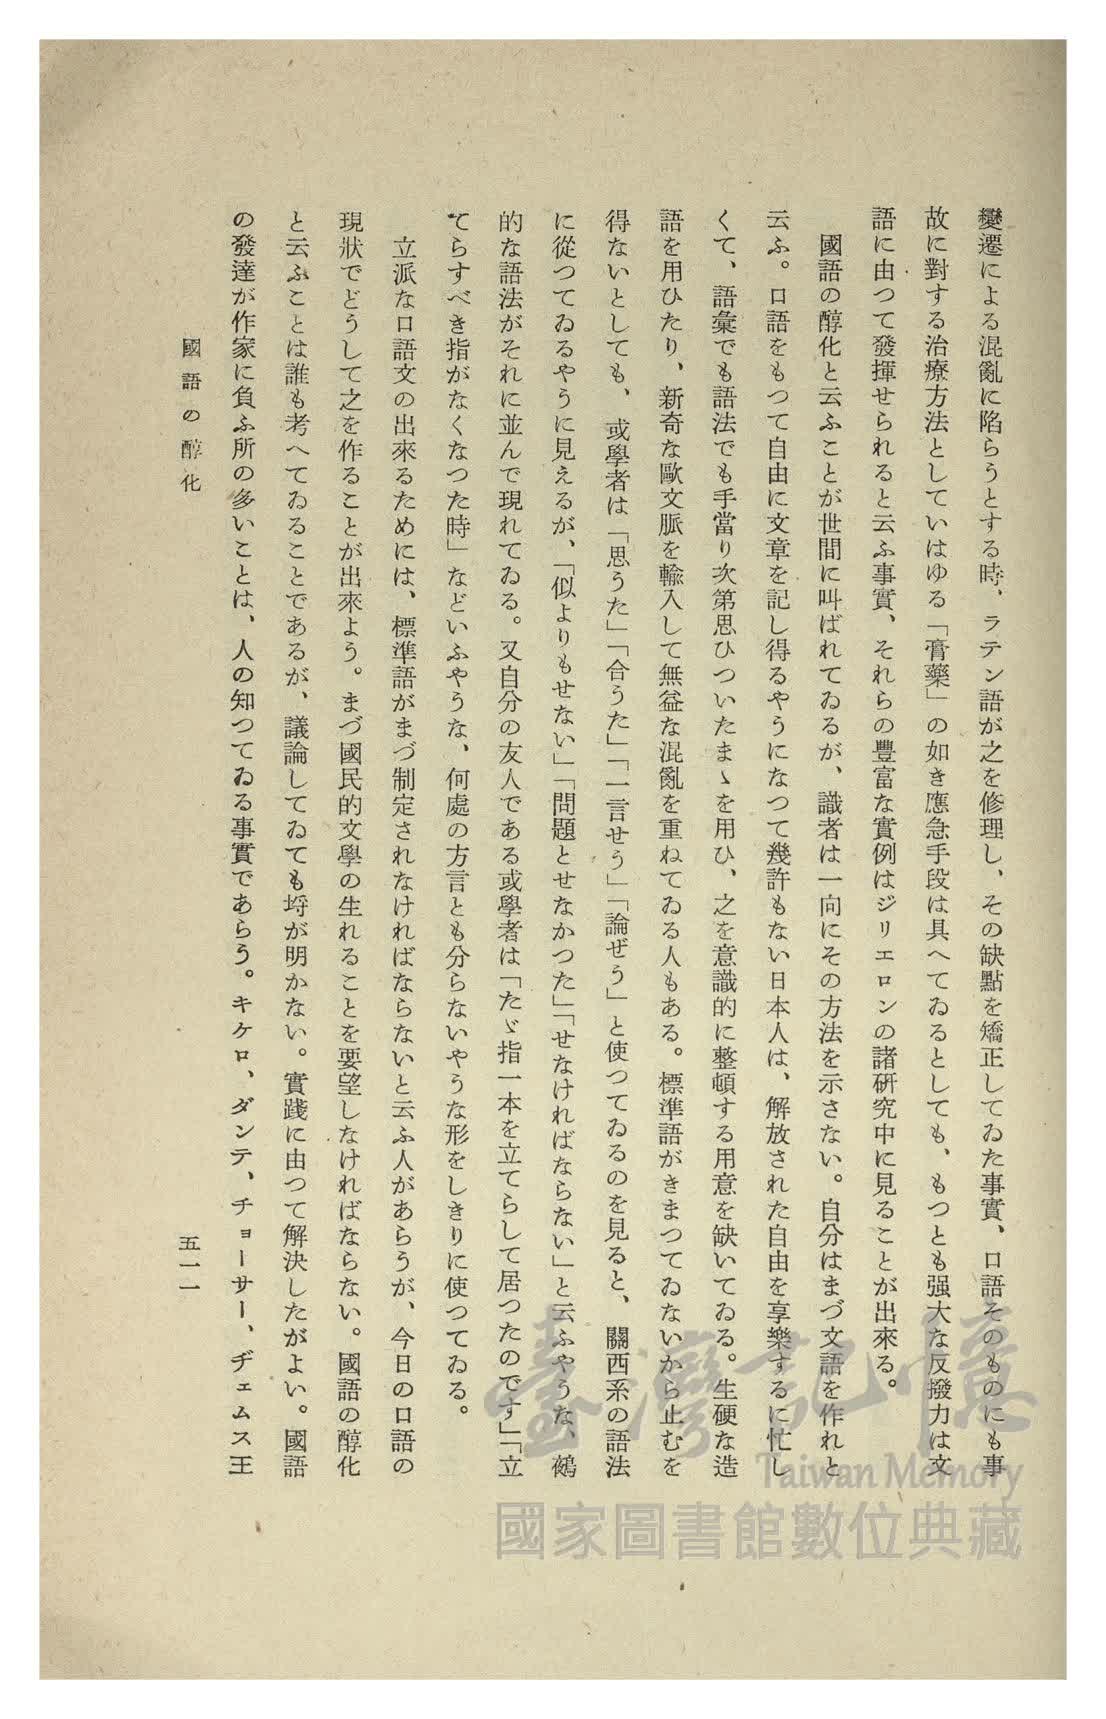 變遷による混亂に陷らうとする時、ラテン語が之を修理し、その缺點を矯正してゐた事實、口語そのものにも事
故に對する治療方法としていはゆる「膏藥」の如き應急手段は具へてゐるとしても、もつとも强大な反撥力は文
語に由つて發揮せられると云ふ事實、それらの豐富な實例はジリエロンの諸硏究中に見ることが出來る。
國語の醇化と云ふことが世間に叫ばれてゐるが、識者は一向にその方法を示さない。自分はまづ文語を作れと
云ふ。口語をもつて自由に文章を記し得るやうになつて幾許もない日本人は、解放された自由を享樂するに忙し
くて、語彙でも語法でも手當り次第思ひついたまゝを用ひ、之を意識的に整頓する用意を缺いてゐる。生硬な造
語を用ひたり、新奇な歐文脈を輸入して無益な混亂を重ねてゐる人もある。標準語がきまつてゐないから止むを
得ないとしても、或學者は「思うた」「合うた」「一言せう」「論ぜう」と使つてゐるのを見ると、關西系の語法
に從つてゐるやうに見えるが、「似よりもせない」「問題とせなかつた」「せなければならない」と云ふやうな、鵺
的な語法がそれに並んで現れてゐる。又自分の友人である或學者は「たゞ指一本を立てらして居つたのです」「立
てらすべき指がなくなつた時」などいふやうな、何處の方言とも分らないやうな形をしきりに使つてゐる。
立派な口語文の出來るためには、標準語がまづ制定されなければならないと云ふ人があらうが、今日の口語の
現狀でどうして之を作ることが出來よう。まづ國民的文學の生れることを要望しなければならない。國語の醇化
と云ふことは誰も考へてゐることであるが、議論してゐても埒が明かない。實踐に由つて解決したがよい。國語
の發達が作家に負ふ所の多いことは、人の知つてゐる事實であらう。キケロ、ダンテ、チョーサー、ヂェムス王
國語の醇化
五一一
臺灣記憶
Taiwan Memory
國家圖書館數位典藏